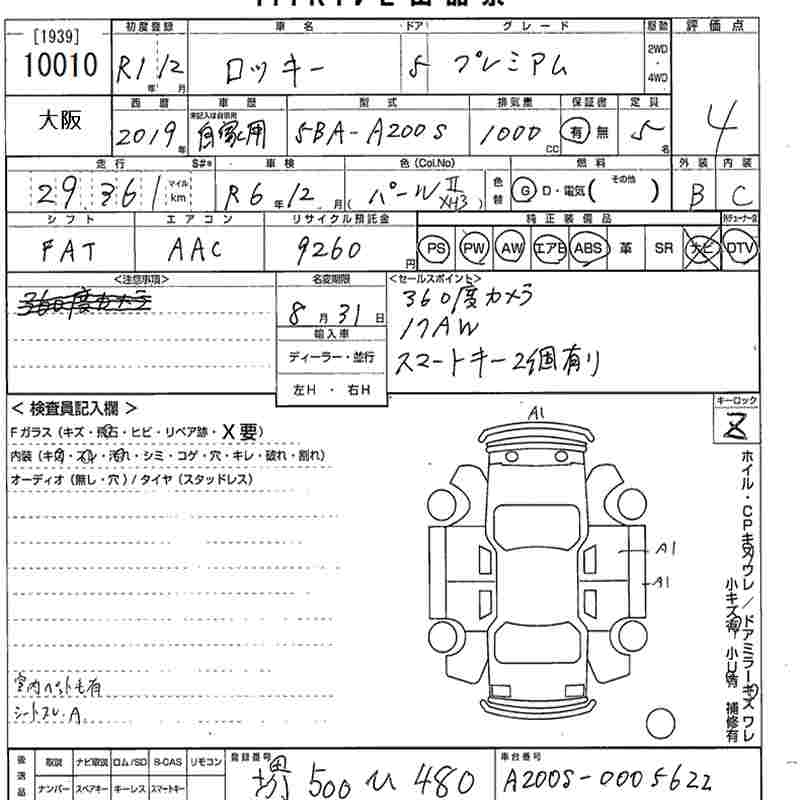 [1939]
10010
初度登録 車名 ドア グレード 駆動 評価点
R1年12月 ロッキー 5 プレミアム 2WD・4WD 4
大阪
西暦 車歴 型式 排気量 保証書 定員
未記入は自家用
2019年 自家用 5BA-A200S 1000cc 有 無 5名
走行 S#* 車検 色(Col.No) 燃料 外装 内装
29,361 マイル km R6年12月 パールⅡ (XH3) 色替 G・D・電気( その他 ) B C
シフト エアコン リサイクル預託金 純正装備品
FAT AAC 9260円 PS PW AW エアB ABS 革 SR ナビ DTV
<注意事項> 名変期限 <セールスポイント>
360度カメラ 8月31日 360度カメラ
輸入車 17AW
ディーラー・並行 スマートキー2個有り
左H ・ 右H
<検査員記入欄> キーロック
Fガラス(キズ・飛石・ヒビ・リペア跡・X要) Z
内装(キズ・スレ・汚れ・シミ・コゲ・穴・キレ・破れ・割れ)
オーディオ(無し・穴)/タイヤ(スタッドレス)
A1
A1
A1
ホイル・CPキズワレ/ドアミラーキズワレ
小キズ有 小U有 補修有
室内ペット毛有
シートスレ.A
後送品 取説 ナビ取説 ロム/SD B-CAS リモコン 登録番号 車台番号
ナンバー スペアキー キーレス スマートキー 500 480 A200S-0005622